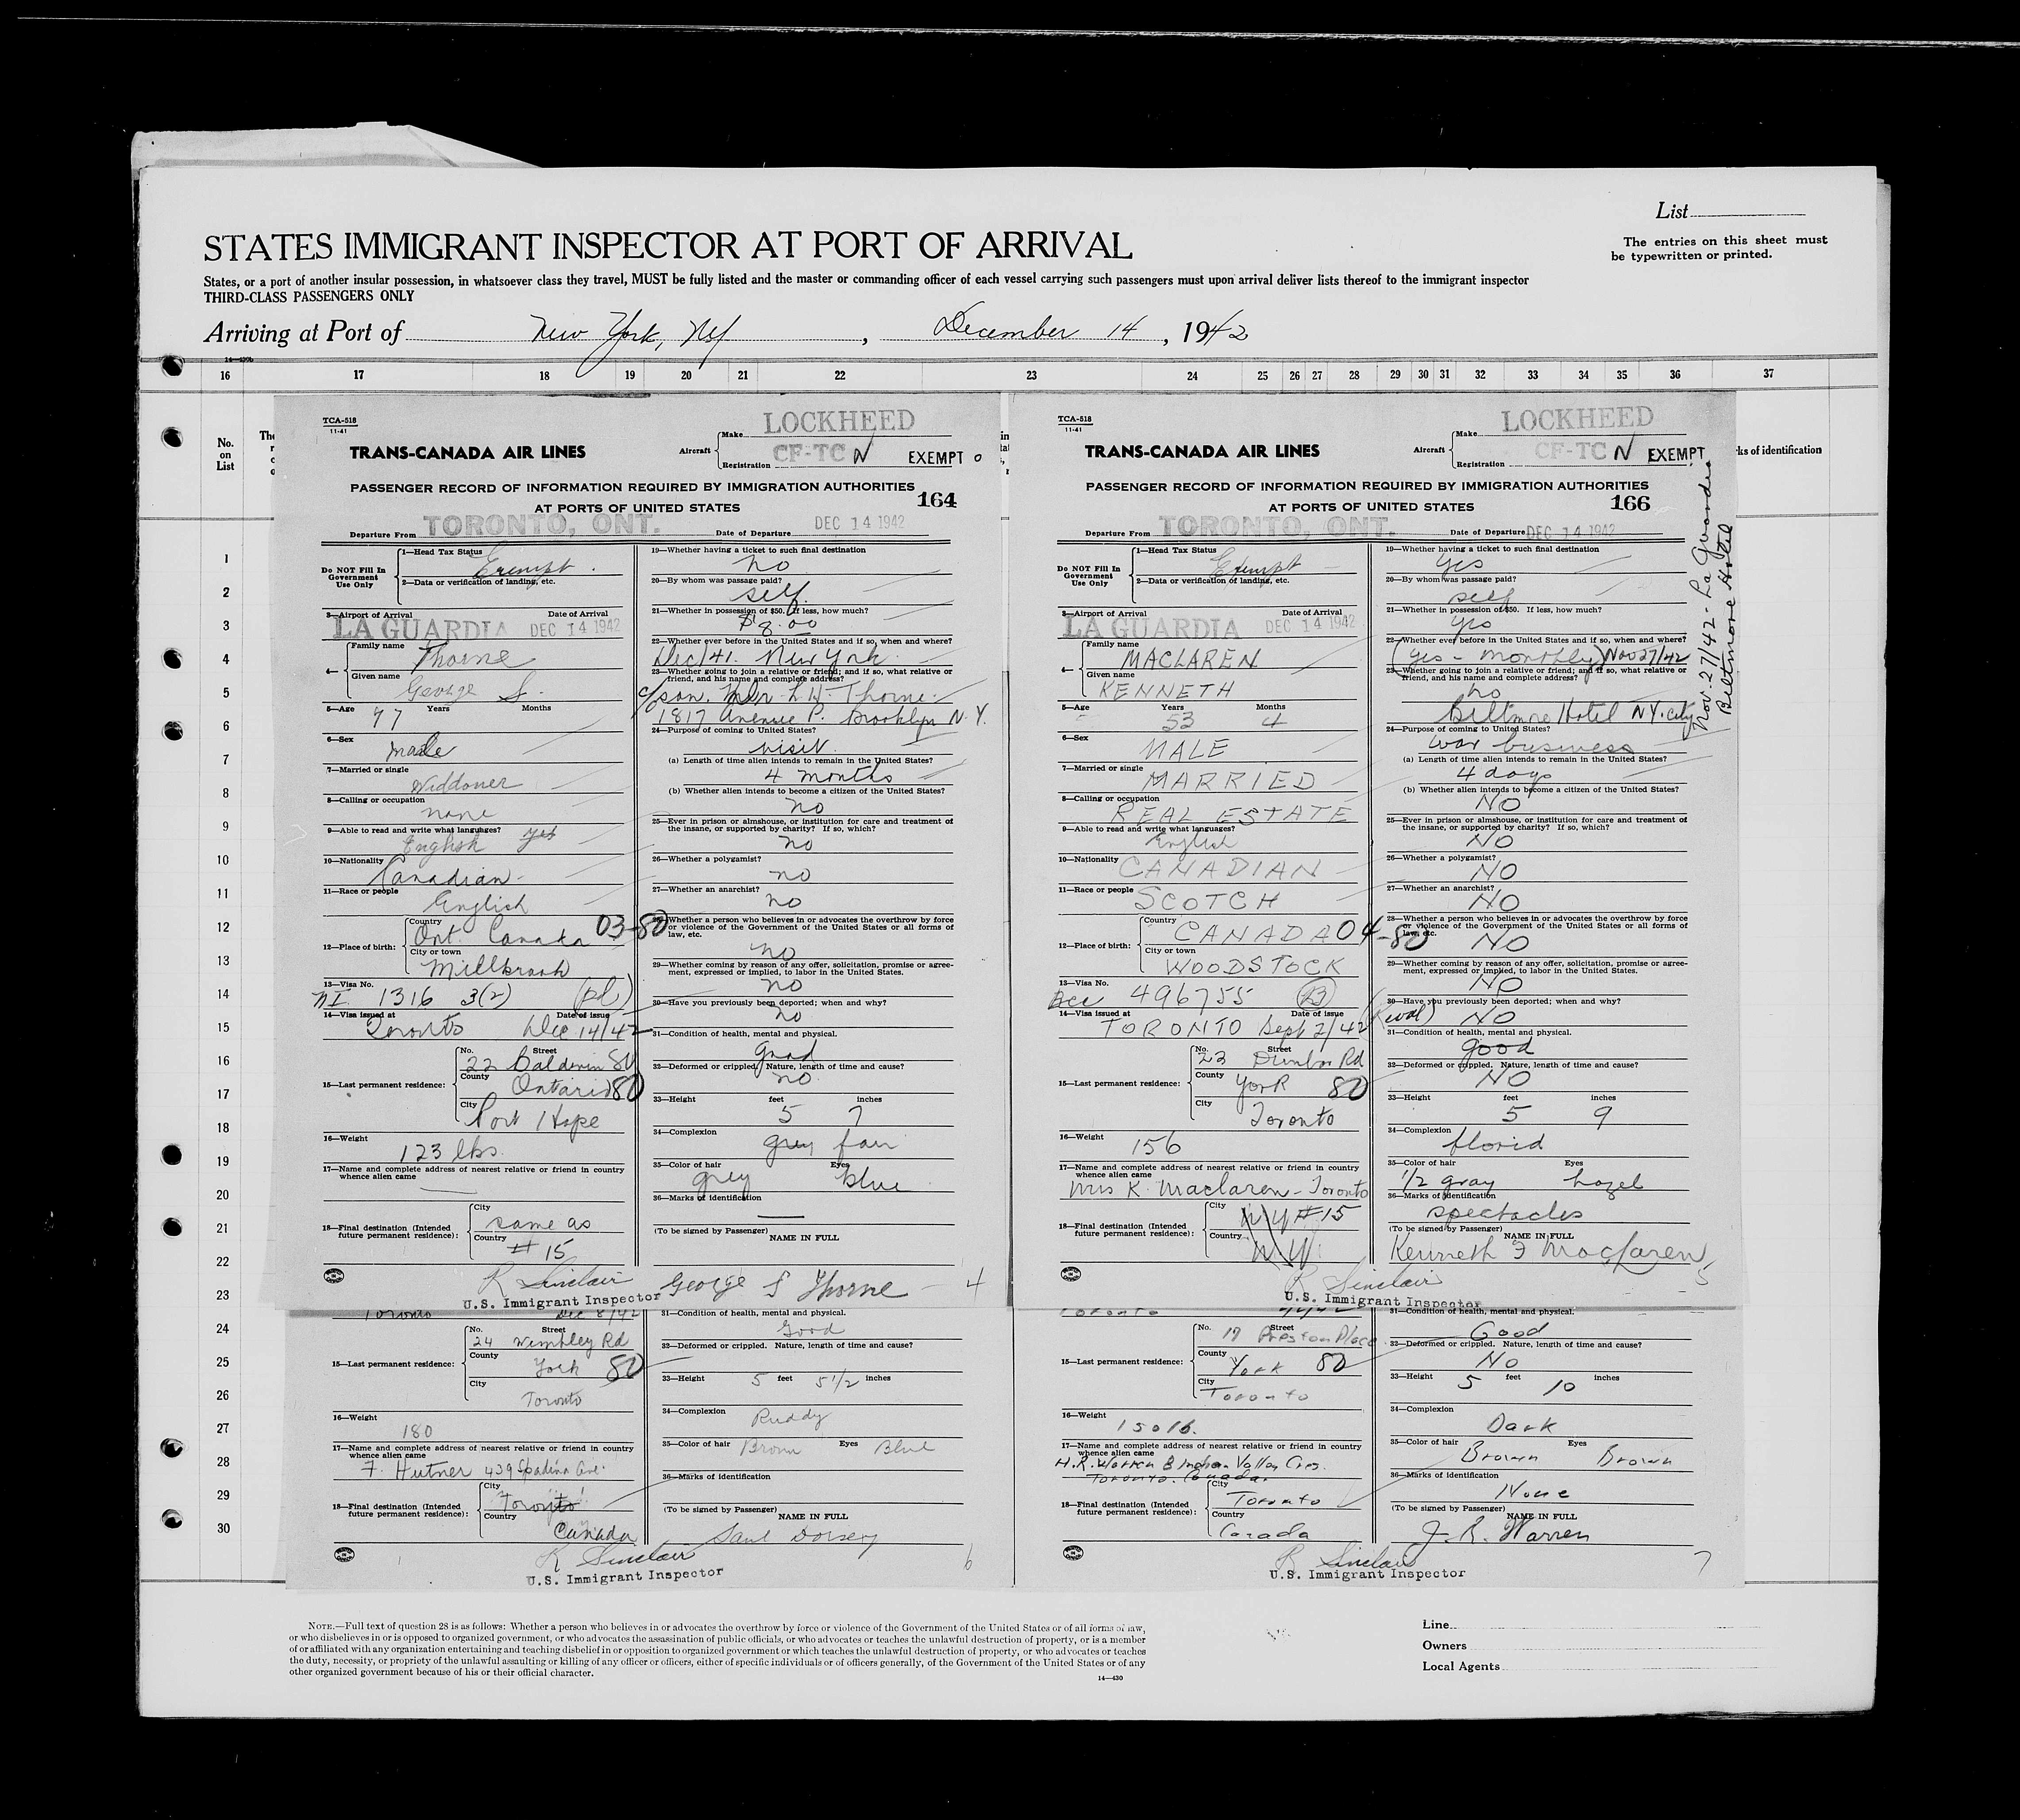 List
STATES IMMIGRANT INSPECTOR AT PORT OF ARRIVAL
The entries on this sheet must
be typewritten or printed.
States, or a port of another insular possession, in whatsoever class they travel, MUST be fully listed and the master or commanding officer of each vessel carrying such passengers must upon arrival deliver lists thereof to the immigrant inspector
THIRD-CLASS PASSENGERS ONLY
Arriving at Port of New York, , December 14, 1942
16 17 18 19 20 21 22 23 24 25 26 27 28 29 30 31 32 33 34 35 36 37
No.
on
List
ks of identification
1
2
3
4
5
6
7
8
9
10
11
12
13
14
15
16
17
18
19
20
21
22
23
24
25
26
27
28
29
30
TCA-518
11-41
TRANS-CANADA AIR LINES
Aircraft
Make LOCKHEED
Registration CF-TC N
EXEMPT
PASSENGER RECORD OF INFORMATION REQUIRED BY IMMIGRATION AUTHORITIES
AT PORTS OF UNITED STATES
164
Departure From TORONTO, ONT. Date of Departure DEC 14 1942
Do NOT Fill In
Government
Use Only
1—Head Tax Status Exempt
2—Data or verification of landing, etc.
3—Airport of Arrival LA GUARDIA Date of Arrival DEC 14 1942
4— Family name Thorne
Given name George S.
5—Age 77 Years Months
6—Sex male
7—Married or single Widdower
8—Calling or occupation none
9—Able to read and write what languages? English yes
10—Nationality Canadian
11—Race or people English
12—Place of birth: Country Ont. Canada 03-80
City or town Millbrook
13—Visa No. NI 1316 3(2) (pd)
14—Visa issued at Toronto Date of issue Dec 14/42
15—Last permanent residence: No. Street 22 Baldwin
County Ontario 80
City Port Hope
16—Weight 123 lbs.
17—Name and complete address of nearest relative or friend in country
whence alien came
18—Final destination (Intended
future permanent residence): City same as
Country # 15
R Sinclair
U.S. Immigrant Inspector
19—Whether having a ticket to such final destination
no
20—By whom was passage paid?
self
21—Whether in possession of $50. If less, how much?
$8.00
22—Whether ever before in the United States and if so, when and where?
Dec/41. New York
23—Whether going to join a relative or friend; and if so, what relative or
friend, and his name and complete address?
c/o son. Mr L H Thorne
1817 Avenue P. Brooklyn N.Y.
24—Purpose of coming to United States?
visit
(a) Length of time alien intends to remain in the United States?
4 months
(b) Whether alien intends to become a citizen of the United States?
no
25—Ever in prison or almshouse, or institution for care and treatment of
the insane, or supported by charity? If so, which?
no
26—Whether a polygamist?
no
27—Whether an anarchist?
no
28—Whether a person who believes in or advocates the overthrow by force
or violence of the Government of the United States or all forms of
law, etc.
no
29—Whether coming by reason of any offer, solicitation, promise or agree-
ment, expressed or implied, to labor in the United States.
no
30—Have you previously been deported; when and why?
no
31—Condition of health, mental and physical.
good
32—Deformed or crippled. Nature, length of time and cause?
no
33—Height 5 feet 7 inches
34—Complexion grey fair
35—Color of hair grey Eyes blue
36—Marks of identification
(To be signed by Passenger)
NAME IN FULL
George S Thorne 4
TCA-518
11-41
TRANS-CANADA AIR LINES
Aircraft
Make LOCKHEED
Registration CF-TC N
EXEMPT
PASSENGER RECORD OF INFORMATION REQUIRED BY IMMIGRATION AUTHORITIES
AT PORTS OF UNITED STATES
166
Departure From TORONTO, ONT. Date of Departure DEC 14 1942
Do NOT Fill In
Government
Use Only
1—Head Tax Status Exempt
2—Data or verification of landing, etc.
3—Airport of Arrival LA GUARDIA Date of Arrival DEC 14 1942
4— Family name MACLAREN
Given name KENNETH
5—Age Years 53 Months 4
6—Sex MALE
7—Married or single MARRIED
8—Calling or occupation REAL ESTATE
9—Able to read and write what languages? English
10—Nationality CANADIAN
11—Race or people SCOTCH
12—Place of birth: Country CANADA 04-80
City or town WOODSTOCK
13—Visa No. 496755
14—Visa issued at TORONTO Date of issue Sept 2/42
15—Last permanent residence: No. Street 23 Dunbar Rd
County York 80
City Toronto
16—Weight 156
17—Name and complete address of nearest relative or friend in country
whence alien came
Mrs K. Maclaren - Toronto
18—Final destination (Intended
future permanent residence): City NY #15
Country NY
R Sinclair
U.S. Immigrant Inspector
19—Whether having a ticket to such final destination
yes
20—By whom was passage paid?
self
21—Whether in possession of $50. If less, how much?
yes
22—Whether ever before in the United States and if so, when and where?
(yes - monthly) Nov 27/42
23—Whether going to join a relative or friend; and if so, what relative or
friend, and his name and complete address?
no
Biltmore Hotel N.Y. City
24—Purpose of coming to United States?
war business
(a) Length of time alien intends to remain in the United States?
4 days
(b) Whether alien intends to become a citizen of the United States?
NO
25—Ever in prison or almshouse, or institution for care and treatment of
the insane, or supported by charity? If so, which?
NO
26—Whether a polygamist?
NO
27—Whether an anarchist?
NO
28—Whether a person who believes in or advocates the overthrow by force
or violence of the Government of the United States or all forms of
law, etc.
NO
29—Whether coming by reason of any offer, solicitation, promise or agree-
ment, expressed or implied, to labor in the United States.
NO
30—Have you previously been deported; when and why?
NO
31—Condition of health, mental and physical.
good
32—Deformed or crippled. Nature, length of time and cause?
NO
33—Height 5 feet 9 inches
34—Complexion florid
35—Color of hair 1/2 gray Eyes hazel
36—Marks of identification
spectacles
(To be signed by Passenger)
NAME IN FULL
Kenneth F Maclaren 5
Nov. 27/42 - La Guardia
Biltmore Hotel
Toronto Dec 8/42
15—Last permanent residence: No. Street 24 Wembley Rd
County York 80
City Toronto
16—Weight 180
17—Name and complete address of nearest relative or friend in country
whence alien came
F. Hutner 439 Spadina Ave.
18—Final destination (Intended
future permanent residence): City Toronto
Country Canada
R Sinclair
U.S. Immigrant Inspector
31—Condition of health, mental and physical.
Good
32—Deformed or crippled. Nature, length of time and cause?
33—Height 5 feet 5 1/2 inches
34—Complexion Ruddy
35—Color of hair Brown Eyes Blue
36—Marks of identification
(To be signed by Passenger)
NAME IN FULL
Saul Dorsey 6
Toronto
15—Last permanent residence: No. Street 17 Preston Place
County York 80
City Toronto
16—Weight 150 lb.
17—Name and complete address of nearest relative or friend in country
whence alien came
H.R. Warren 8 Indian Valley Cres.
Toronto. Canada.
18—Final destination (Intended
future permanent residence): City Toronto
Country Canada
R Sinclair
U.S. Immigrant Inspector
31—Condition of health, mental and physical.
Good
32—Deformed or crippled. Nature, length of time and cause?
No
33—Height 5 feet 10 inches
34—Complexion Dark
35—Color of hair Brown Eyes Brown
36—Marks of identification
None
(To be signed by Passenger)
NAME IN FULL
J. R. Warren 7
NOTE.—Full text of question 28 is as follows: Whether a person who believes in or advocates the overthrow by force or violence of the Government of the United States or of all forms of law,
or who disbelieves in or is opposed to organized government, or who advocates the assassination of public officials, or who advocates or teaches the unlawful destruction of property, or is a member
of or affiliated with any organization entertaining and teaching disbelief in or opposition to organized government or which teaches the unlawful destruction of property, or who advocates or teaches
the duty, necessity, or propriety of the unlawful assaulting or killing of any officer or officers, either of specific individuals or of officers generally, of the Government of the United States or of any
other organized government because of his or their official character.
14—430
Line
Owners
Local Agents